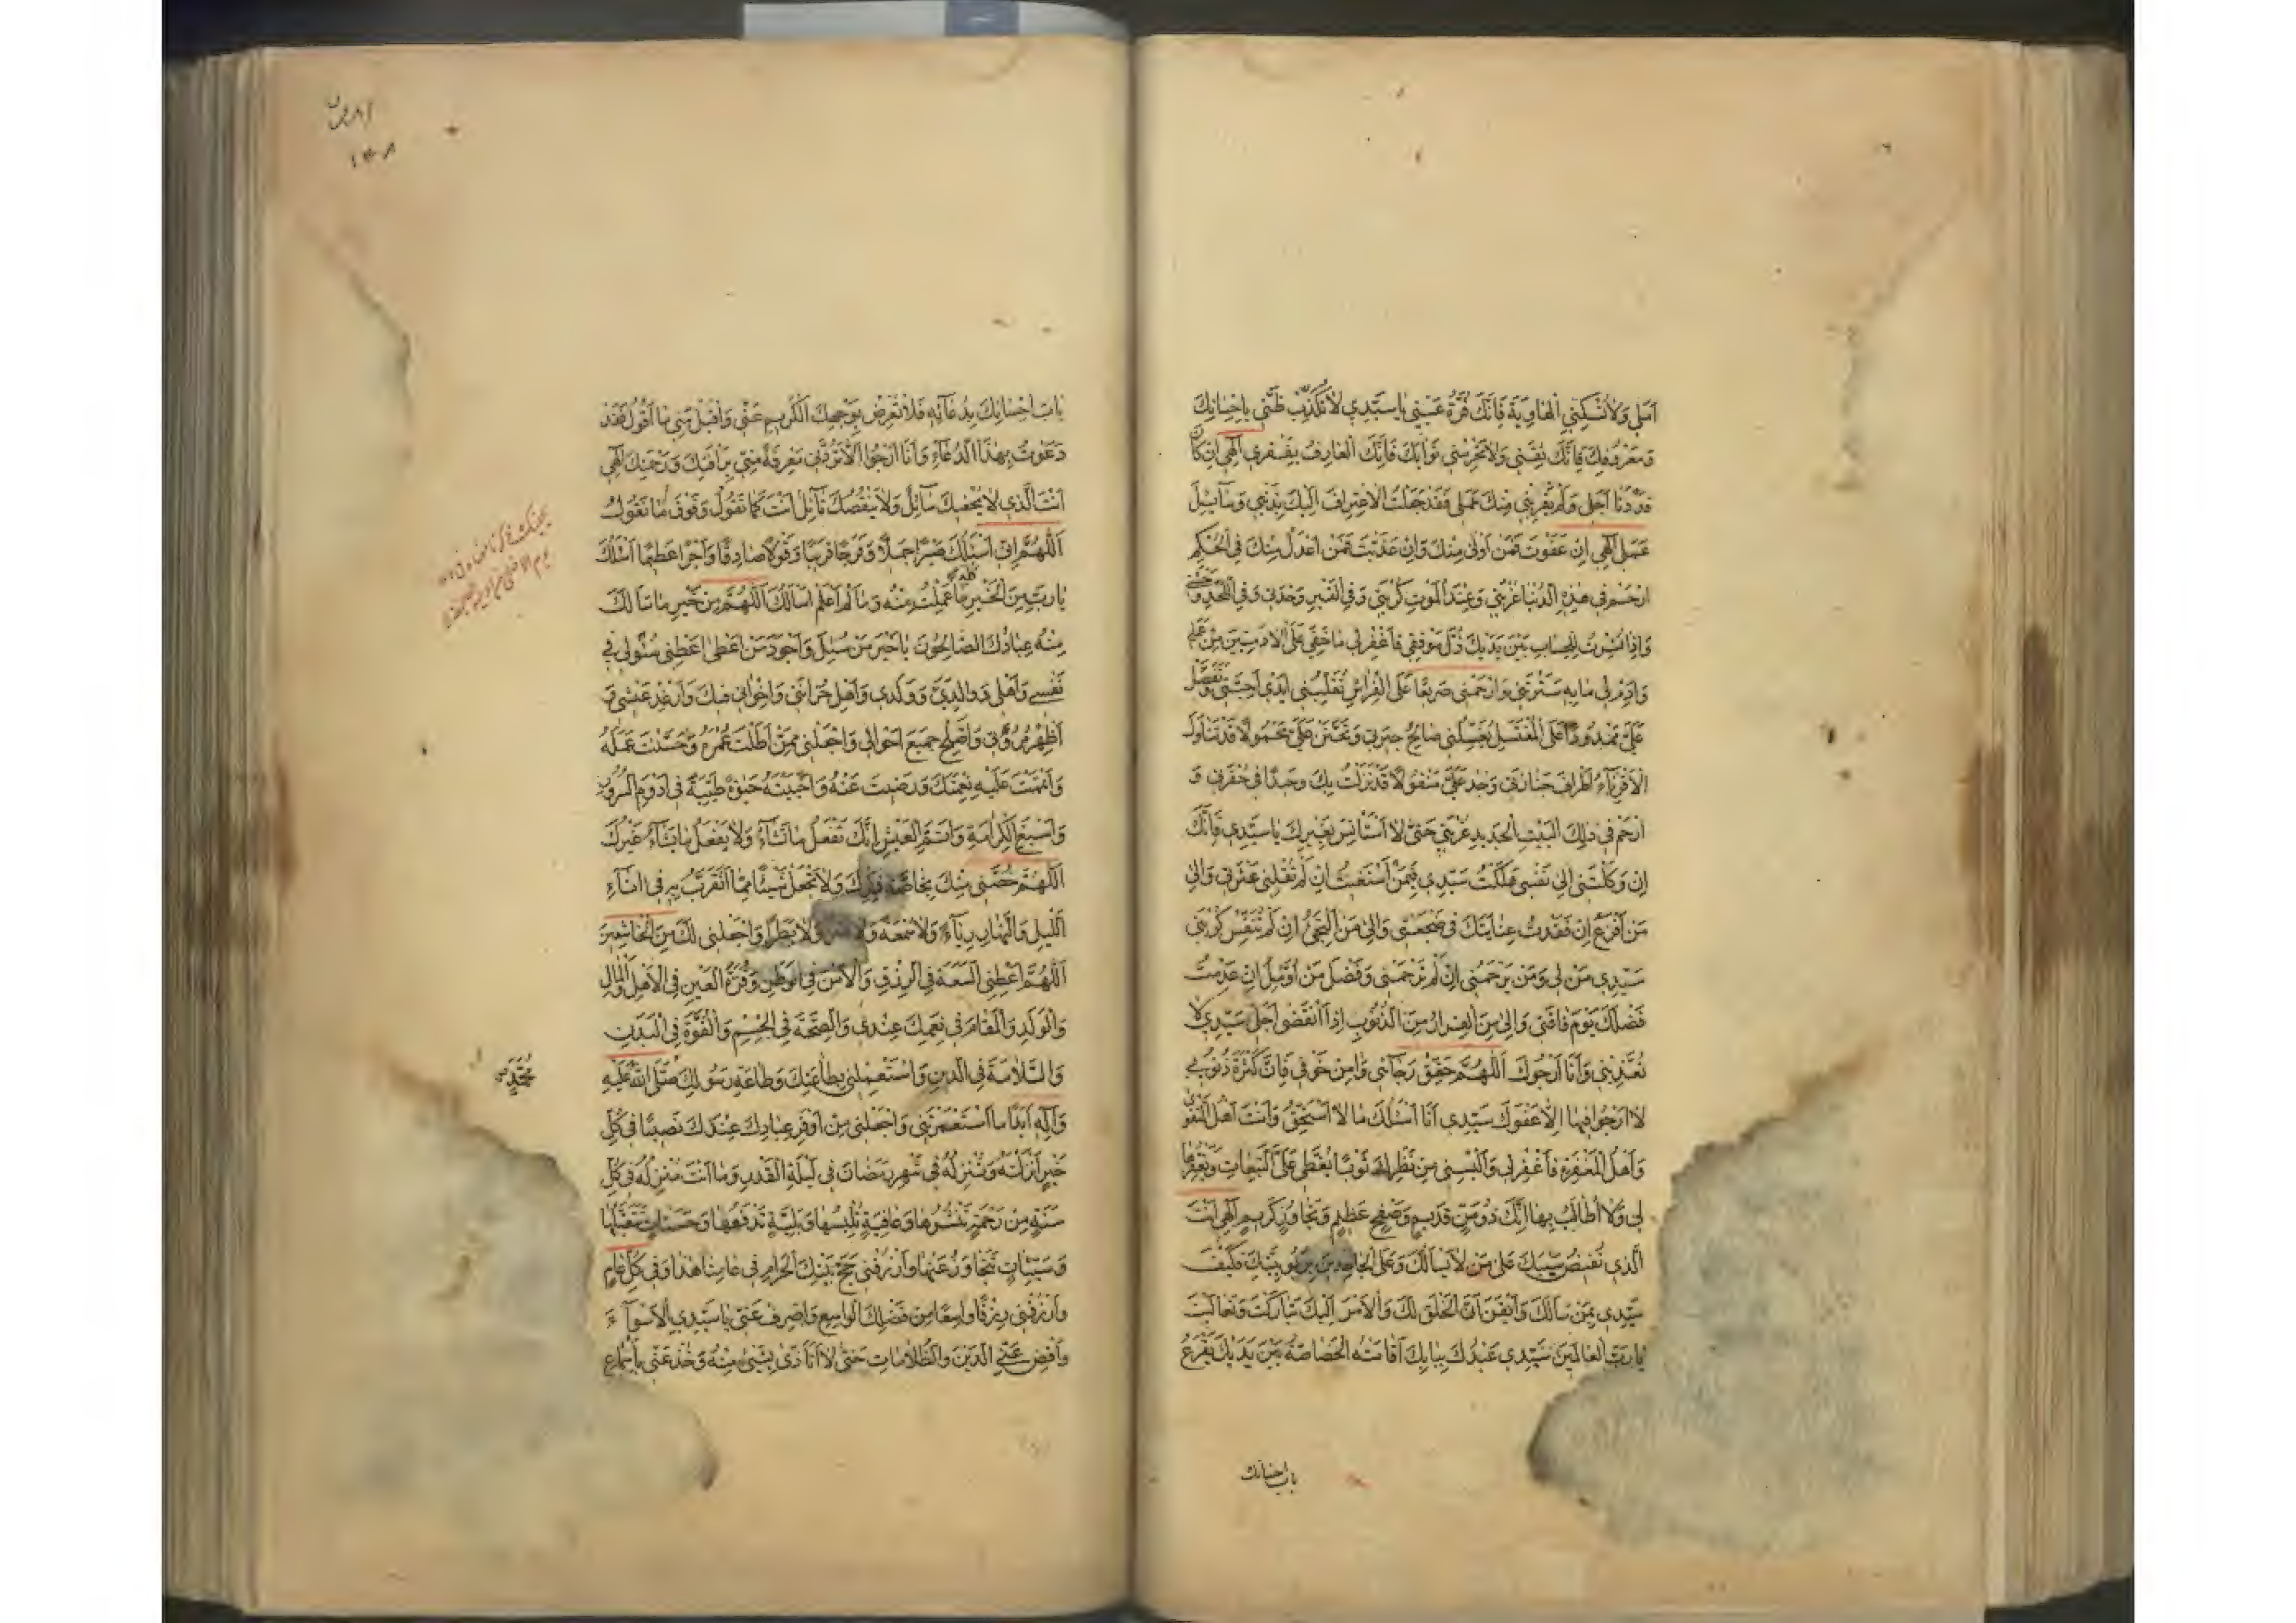 اَمَلي وَلا تُسْكِنِّي الْهاوِيَةَ فَاِنَّكَ قُرَّةُ عَيْني يا سَيِّدي لا تُكَذِّبْ ظَنّي بِاِحْسانِكَ
وَمَعْرُوفِكَ فَاِنَّكَ ثِقَتي وَلا تَحْرِمْني ثَوابَكَ فَاِنَّكَ الْعارِفُ بِفَقْري اِلهي اِنْ كانَ
قَدْ دَنا اَجَلي وَلَمْ يُقَرِّبْني مِنْكَ عَمَلي فَقَدْ جَعَلْتُ الْاِعْتِرافَ اِلَيْكَ بِذَنْبي وَسآئِلَ
عَمَلي اِلهي اِنْ عَفَوْتَ فَمَنْ اَوْلى مِنْكَ وَاِنْ عَذَّبْتَ فَمَنْ اَعْدَلُ مِنْكَ فِي الْحُكْمِ
ارْحَمْ في هذِهِ الدُّنْيا غُرْبَتي وَعِنْدَ الْمَوْتِ كُرْبَتي وَفِي الْقَبْرِ وَحْدَتي وَفِي اللَّحْدِ وَحْشَتي
وَاِذا نُشِرْتُ لِلْحِسابِ بَيْنَ يَدَيْكَ ذُلَّ مَوْقِفي فَاغْفِرْ لي ما خَفِيَ عَلَى الْادَمِيّينَ مِنْ عَمَلي
وَاَدِمْ لي ما بِهِ سَتَرْتَني وَارْحَمْني صَريعًا عَلَى الْفِراشِ تُقَلِّبُني اَيْدي اَحِبَّتي وَتَفَضَّلْ
عَلَيَّ مَمْدُودًا عَلَى الْمُغْتَسَلِ يُغَسِّلُني صالِحُ جيرَتي وَتَحَنَّنْ عَلَيَّ مَحْمُولًا قَدْ تَناوَلَ
الْاَقْرِبآءُ اَطْرافَ جَنازَتي وَجُدْ عَلَيَّ مَنْقُولًا قَدْ نَزَلْتُ بِكَ وَحيدًا في حُفْرَتي وَ
ارْحَمْ في ذلِكَ الْبَيْتِ الْجَديدِ غُرْبَتي حَتّى لا اَسْتَأْنِسَ بِغَيْرِكَ يا سَيِّدي فَاِنَّكَ
اِنْ وَكَلْتَني اِلى نَفْسي هَلَكْتُ سَيِّدي فَبِمَنْ اَسْتَغيثُ اِنْ لَمْ تُقِلْني عَثْرَتي وَاِلى
مَنْ اَفْزَعُ اِنْ فَقَدْتُ عِنايَتَكَ في ضَجْعَتي وَاِلى مَنْ اَلْتَجِئُ اِنْ لَمْ تُنَفِّسْ كُرْبَتي
سَيِّدي مَنْ لي وَمَنْ يَرْحَمُني اِنْ لَمْ تَرْحَمْني وَفَضْلَ مَنْ اُؤَمِّلُ اِنْ عَدِمْتُ
فَضْلَكَ يَوْمَ فاقَتي وَاِلى مَنِ الْفِرارُ مِنَ الذُّنُوبِ اِذَا انْقَضى اَجَلي سَيِّدي لا
تُعَذِّبْني وَاَنَا اَرْجُوكَ اَللّهُمَّ حَقِّقْ رَجآئي وَامِنْ خَوْفي فَاِنَّ كَثْرَةَ ذُنُوبي
لا اَرْجُو فيها اِلّا عَفْوَكَ سَيِّدي اَنَا اَسْئَلُكَ ما لا اَسْتَحِقُّ وَاَنْتَ اَهْلُ التَّقْوى
وَاَهْلُ الْمَغْفِرَةِ فَاغْفِرْ لي وَاَلْبِسْني مِنْ نَظَرِكَ ثَوْبًا يُغَطّي عَلَيَّ التَّبِعاتِ وَتَغْفِرُها
لي وَلا اُطالَبُ بِها اِنَّكَ ذُو مَنٍّ قَديمٍ وَصَفْحٍ عَظيمٍ وَتَجاوُزٍ كَريمٍ اِلهي اَنْتَ
الَّذي تُفيضُ سَيْبَكَ عَلى مَنْ لا يَسْاَلُكَ وَعَلَى الْجاحِدينَ بِرُبُوبِيَّتِكَ فَكَيْفَ
سَيِّدي بِمَنْ سَاَلَكَ وَاَيْقَنَ اَنَّ الْخَلْقَ لَكَ وَالْاَمْرَ اِلَيْكَ تَبارَكْتَ وَتَعالَيْتَ
يا رَبَّ الْعالَمينَ سَيِّدي عَبْدُكَ بِبابِكَ اَقامَتْهُ الْخَصاصَةُ بَيْنَ يَدَيْكَ يَقْرَعُ
باب احسانك
بابَ اِحْسانِكَ بِدُعآئِهِ فَلا تُعْرِضْ بِوَجْهِكَ الْكَريمِ عَنّي وَاقْبَلْ مِنّي ما اَقُولُ فَقَدْ
دَعَوْتُ بِهذَا الدُّعآءِ وَاَنَا اَرْجُو اَلّا تَرُدَّني مَعْرِفَةً مِنّي بِرَأْفَتِكَ وَرَحْمَتِكَ اِلهي
اَنْتَ الَّذي لا يُحْفيكَ سآئِلٌ وَلا يَنْقُصُكَ نآئِلٌ اَنْتَ كَما تَقُولُ وَفَوْقَ ما نَقُولُ
اَللّهُمَّ اِنّي اَسْئَلُكَ صَبْرًا جَميلًا وَفَرَجًا قَريبًا وَقَوْلًا صادِقًا وَاَجْرًا عَظيمًا اَسْئَلُكَ
يا رَبِّ مِنَ الْخَيْرِ كُلِّهِ ما عَمِلْتُ مِنْهُ وَما لَمْ اَعْلَمْ اَسْاَلُكَ اَللّهُمَّ مِنْ خَيْرِ ما سَاَلَكَ
مِنْهُ عِبادُكَ الصّالِحُونَ يا خَيْرَ مَنْ سُئِلَ وَاَجْوَدَ مَنْ اَعْطى اَعْطِني سُؤْلي في
نَفْسي وَاَهْلي وَوالِدَيَّ وَوَلَدي وَاَهْلِ حُزانَتي وَاِخْواني فيكَ وَاَرْغِدْ عَيْشي وَ
اَظْهِرْ مُرُوَّتي وَاَصْلِحْ جَميعَ اَحْوالي وَاجْعَلْني مِمَّنْ اَطَلْتَ عُمْرَهُ وَحَسَّنْتَ عَمَلَهُ
وَاَتْمَمْتَ عَلَيْهِ نِعْمَتَكَ وَرَضيتَ عَنْهُ وَاَحْيَيْتَهُ حَيوةً طَيِّبَةً في اَدْوَمِ السُّرُورِ
وَاَسْبَغِ الْكَرامَةِ وَاَتَمِّ الْعَيْشِ اِنَّكَ تَفْعَلُ ما تَشآءُ وَلا يَفْعَلُ ما يَشآءُ غَيْرُكَ
اَللّهُمَّ خُصَّني مِنْكَ بِخاصَّةِ ذِكْرِكَ وَلا تَجْعَلْ شَيْئًا مِمّا اَتَقَرَّبُ بِهِ في اناءِ
اللَّيْلِ وَالنَّهارِ رِيآءً وَلا سُمْعَةً وَلا اَشَرًا وَلا بَطَرًا وَاجْعَلْني لَكَ مِنَ الْخاشِعينَ
اَللّهُمَّ اَعْطِنِي السَّعَةَ فِي الرِّزْقِ وَالْاَمْنَ فِي الْوَطَنِ وَقُرَّةَ الْعَيْنِ فِي الْاَهْلِ وَالْمالِ
وَالْوَلَدِ وَالْمَقامَ في نِعَمِكَ عِنْدي وَالصِّحَّةَ فِي الْجِسْمِ وَالْقُوَّةَ فِي الْبَدَنِ
وَالسَّلامَةَ فِي الدّينِ وَاسْتَعْمِلْني بِطاعَتِكَ وَطاعَةِ رَسُولِكَ صَلَّى اللهُ عَلَيْهِ
محمد
وَآلِهِ اَبَدًا مَا اسْتَعْمَرْتَني وَاجْعَلْني مِنْ اَوْفَرِ عِبادِكَ عِنْدَكَ نَصيبًا في كُلِّ
خَيْرٍ اَنْزَلْتَهُ وَتُنْزِلُهُ في شَهْرِ رَمَضانَ في لَيْلَةِ الْقَدْرِ وَما اَنْتَ مُنْزِلُهُ في كُلِّ
سَنَةٍ مِنْ رَحْمَةٍ تَنْشُرُها وَعافِيَةٍ تُلْبِسُها وَبَلِيَّةٍ تَدْفَعُها وَحَسَناتٍ تَتَقَبَّلُها
وَسَيِّئاتٍ تَتَجاوَزُ عَنْها وَارْزُقْني حَجَّ بَيْتِكَ الْحَرامِ في عامِنا هذا وَفي كُلِّ عامٍ
وَارْزُقْني رِزْقًا واسِعًا مِنْ فَضْلِكَ الْواسِعِ وَاصْرِفْ عَنّي يا سَيِّدي الْاَسْوآءَ
وَاقْضِ عَنِّي الدَّيْنَ وَالظُّلاماتِ حَتّى لا اَتَاَذّى بِشَيْءٍ مِنْهُ وَخُذْ عَنّي بِاَسْماعِ